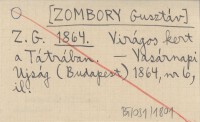 [ZOMBORY Gusztáv]
Z. G. 1864. Virágos kert
a Tátrában. — Vasárnapi
Ujság (Budapest) 1864, nr 6,
il.